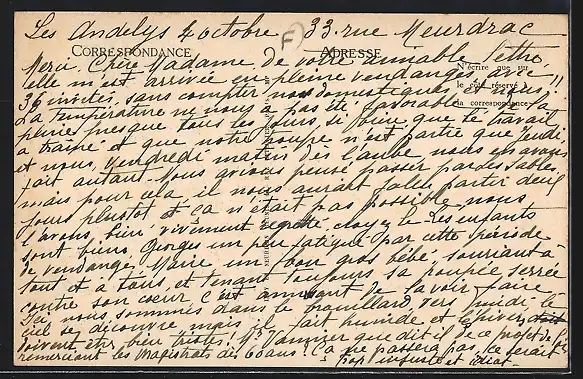 Les Andelys 4 octobre 33. rue Meurdrac
F
CORRESPONDANCE
ADRESSE
N'écrire que sur
le côté réservé à
la correspondance
Merci Chère Madame de votre aimable lettre
elle m'est arrivée en pleine vendanges avec
36 invités, sans compter nos domestiques et nous!!
La température ne nous a pas été favorable. De la
pluie presque tous les jours, si bien que le travail
a trainé et que notre troupe n'est partie que jeudi
et nous, vendredi matin dès l'aube, nous en avons
fait autant. Nous avions pensé passer par des Sables,
mais pour cela il nous aurait fallu partir deux
jours plustot et ça n'était pas possible, nous
l'avons bien vivement regretté, croyez le. Les enfants
sont biens, Georges un peu fatigué par cette période
de vendange, Marie un bon gros bébé, souriant à
tout et à tous, et tenant toujours sa poupée serrée
contre son coeur, c'est amusant de la voir faire
Ici nous sommes dans le brouillard vers midi le
ciel se découvre mais il fait humide et l'hiver
doivent être bien tristes! Mr dit il de ce projet de loi
remerciant les Magistrats de 60 ans! Ça ne passera pas, ce serait
trop injuste et idiot.